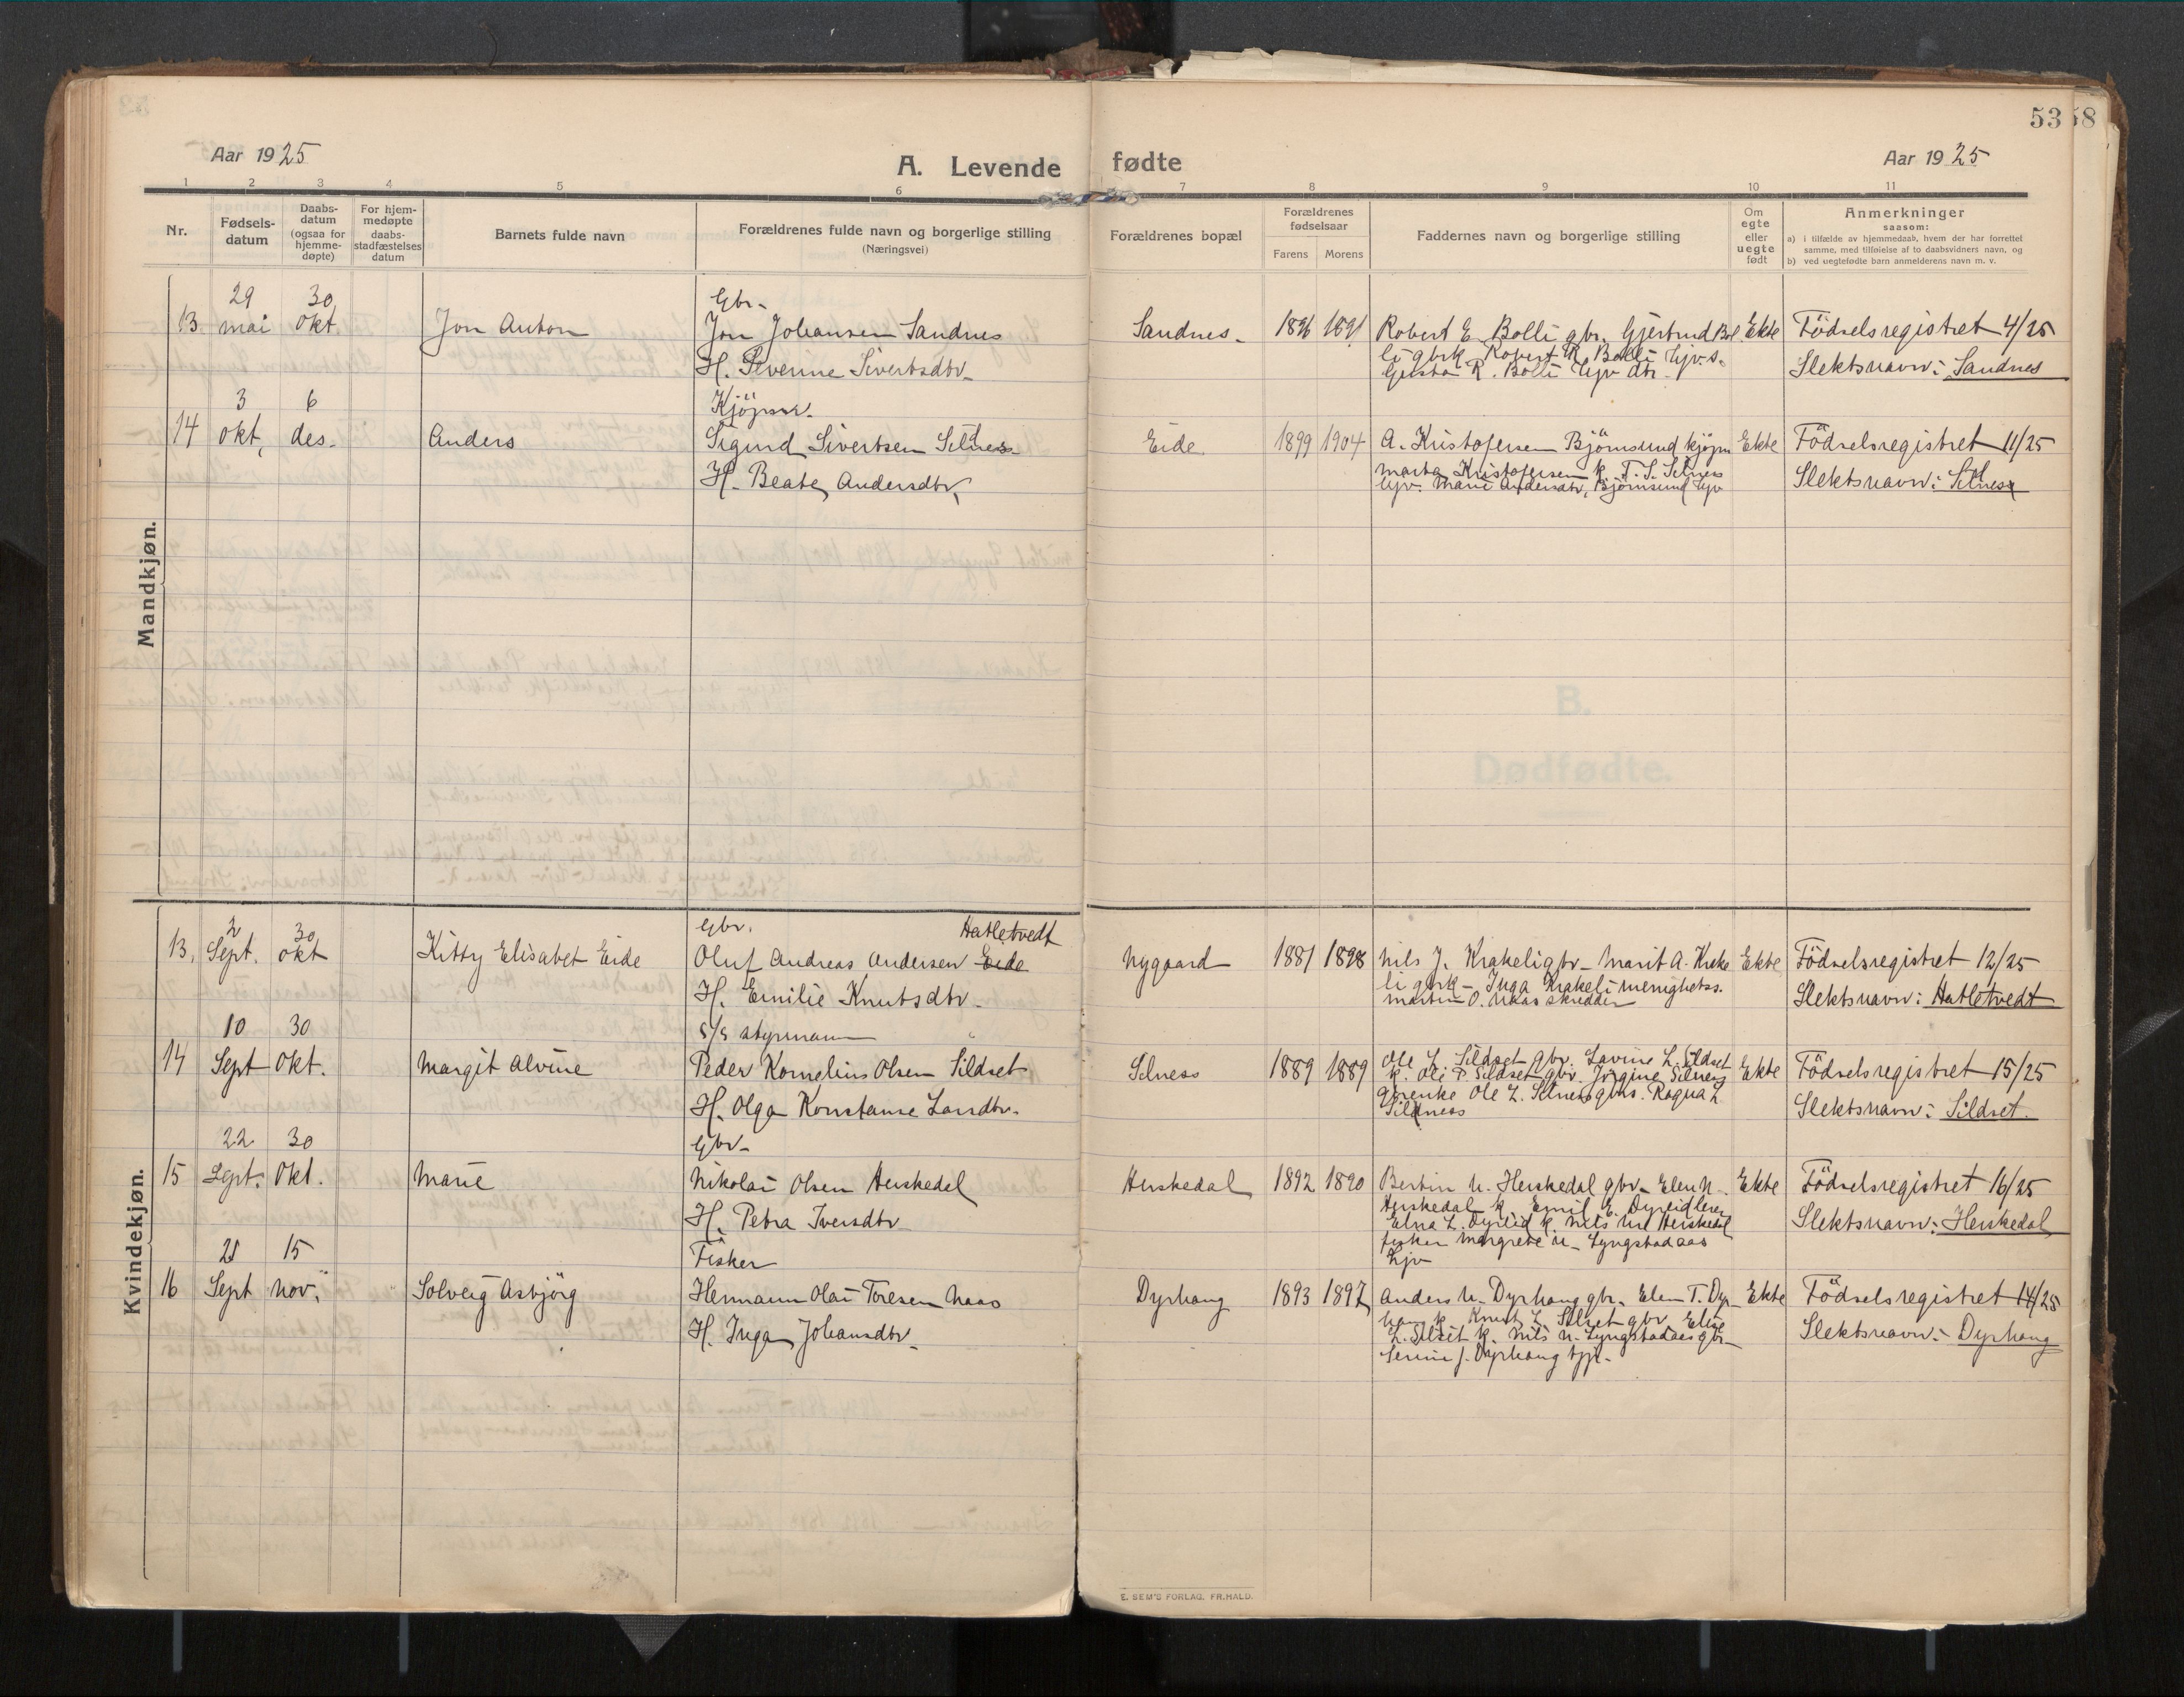 53 58
Aar 1925
A. Levende fødte
Aar 1925
1 2 3 4 5 6 7 8 9 10 11
Nr.
Fødsels-
datum
Daabs-
datum
(ogsaa for
hjemme-
døpte)
For hjem-
medøpte
daabs-
stadfæstelses
datum
Barnets fulde navn
Forældrenes fulde navn og borgerlige stilling
(Næringsvei)
Forældrenes bopæl
Forældrenes
fødselsaar
Farens Morens
Faddernes navn og borgerlige stilling
Om
egte
eller
uegte
født
Anmerkninger
saasom:
a) i tilfælde av hjemmedaab, hvem der har forrettet
samme, med tilføielse af to daabsvidners navn, og
b) ved uegtefødte barn anmelderens navn m. v.
Mandkjøn.
13. 29 mai 30 okt.
Jon Anton
Gbr.
Jon Johansen Sandnes
H. Severine Sivertsdtr.
Sandnes.
1896 1891
Robert E. Bolli gbr. Gjertrud Bol
li gbrk. Robert R. Bolli Ugv. s.
R. Bolli Ugv dtr.
Ekte
Födselsregistret 4/25
Slektsnavn: Sandnes
14 3 okt, 6 des.
Anders
Kjöpm.
Sigurd Sivertsen Silnes
H. Beate Andersdtr.
Eide
1899 1904
A. Kristofersen Björnsund kjöpm
Marta Kristofersen k. T. S. Silnes
Ugv. Marie Andersdtr, Björnsund Ugv
Ekte
Födselsregistret 11/25
Slektsnavn: Silnes
B.
Dødfødte.
Kvindekjøn.
13. 2 Sept. 30 okt
Kitty Elisabet Eide
Gbr. Hatletvedt
Oluf Andreas Andersen Eide
H. Emilie Knutsdtr.
Nygaard
1881 1898
Nils J. Krakeli gbr. Marit A. Krake
li gbrk - Inga Krakeli menighetss.
Martin O. Naas skredder
Ekte
Födselsregistret 12/25
Slektsnavn: Hatletvedt
14 10 Sept 30 Okt.
Margit Alvine
s/s styrmann
Peder Kornelius Olsen Sildset
H. Olga Konstanse Larsdtr.
Silness
1889 1889
Ole L. Sildset gbr. Lovise L. Sildset
k. Ole P. Sildset gbr. Jörgine Silness
gbrenke Ole L. Silness gbrs. Ragna L
Silness
Ekte
Födselsregistret 15/25
Slektsnavn: Sildset.
15 22 Sept. 30 Okt.
Marie
Gbr.
Nikolai Olsen Herskedal
H. Petra Iversdtr
Herskedal
1892 1890
Bertin N. Herskedal gbr. Elen N.
Herskedal k. Emil E. Dyrlid lærer
Elna L. Dyrlid k. Nils Herskedal
fisker Margrete Lyngstadaas
Ugv
Ekte
Födselsregistret 16/25
Slektsnavn: Herskedal
16 21 Sept 15 Nov.
Solveig Asbjörg
Fisker
Hermann Olai Toresen Naas
H. Inga Johansdtr.
Dyrhaug
1893 1897
Anders N. Dyrhaug gbr. Elen T. Dyr
haug k. Knut L. Silset gbr Elise
L. Silset k. Nils N. Lyngstadaas gbr
Serine J. Dyrhaug tjp.
Ekte
Födselsregistret 14/25
Slektsnavn: Dyrhaug
E. SEM'S FORLAG, FR.HALD.